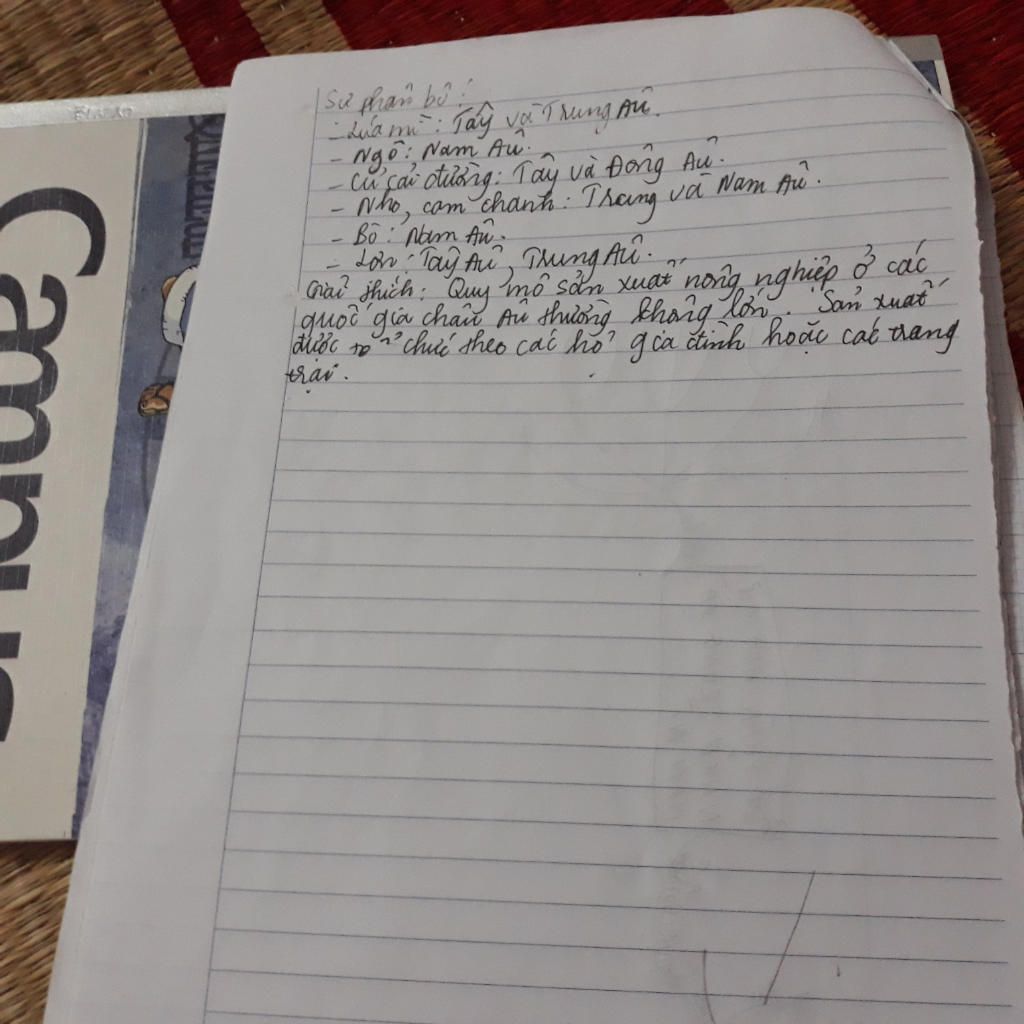 Sự phân bố:
- Lúa mì: Tây và Trung Âu.
- Ngô: Nam Âu.
- Củ cải đường: Tây và Đông Âu.
- Nho, cam chanh: Trung và Nam Âu.
- Bò: Nam Âu.
- Lợn: Tây Âu, Trung Âu.
Giải thích: Quy mô sản xuất nông nghiệp ở các
quốc gia châu Âu thường không lớn. Sản xuất
được tổ chức theo các hộ gia đình hoặc các trang
trại.
Campus